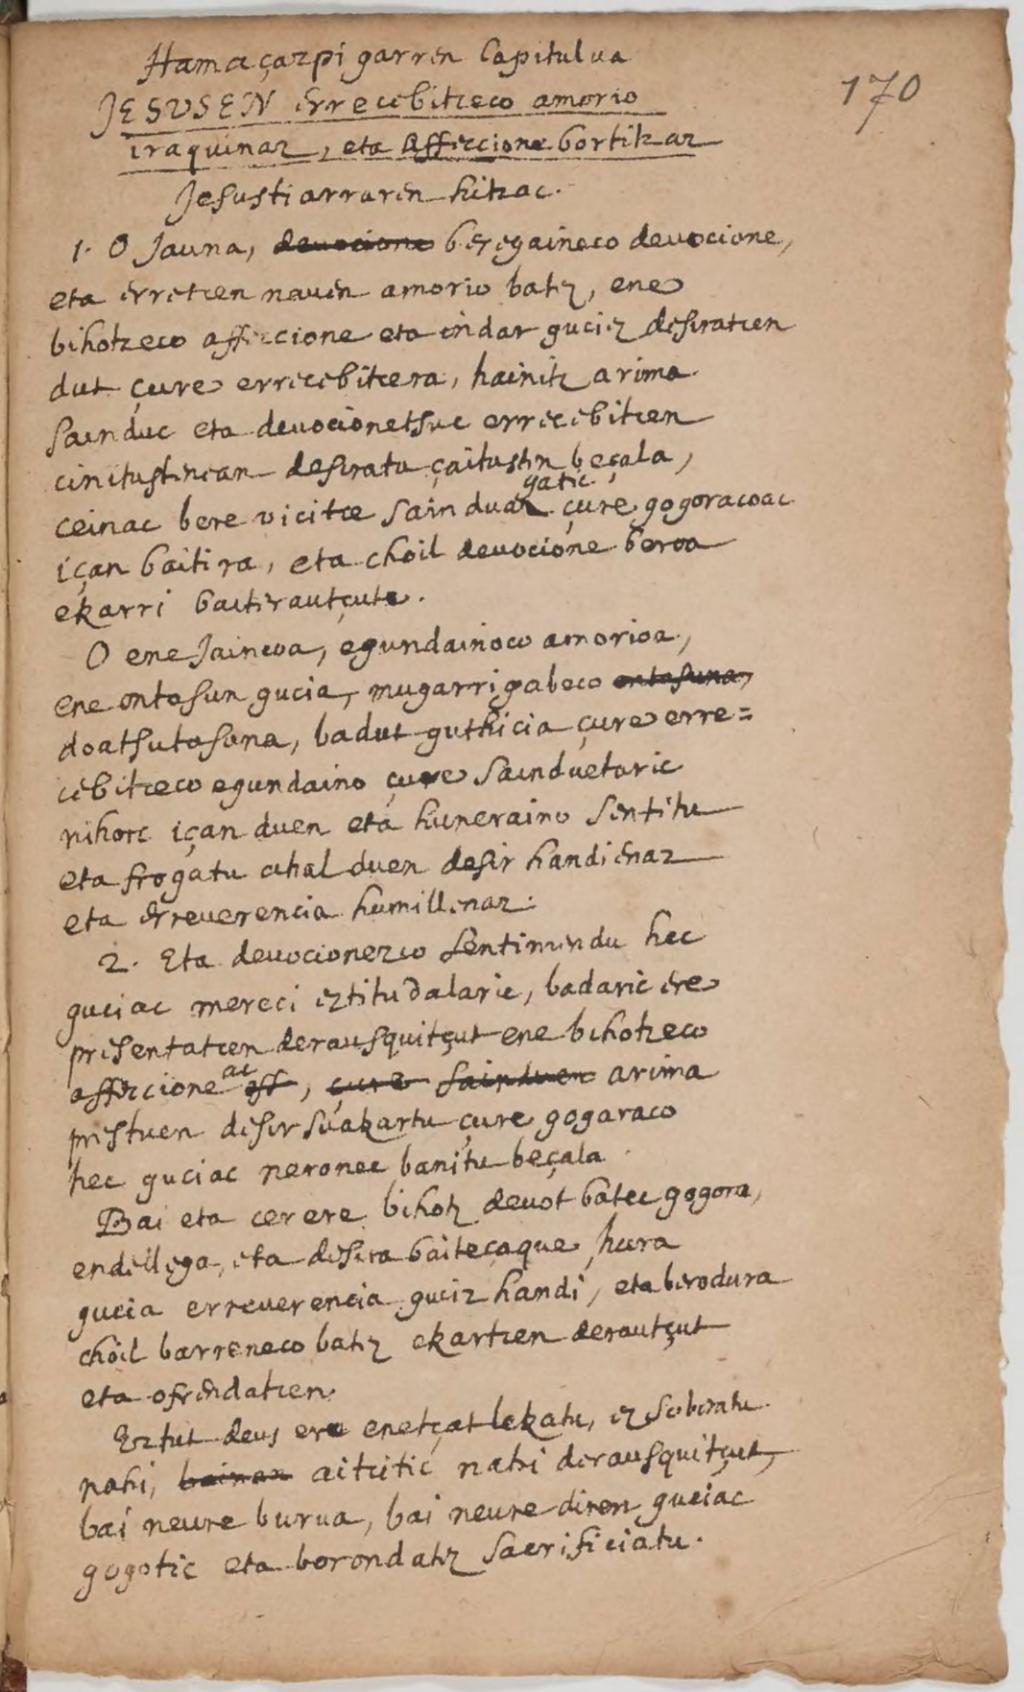 170
Hamaçazpi garren Capitulua
JESUSEN errecebitceco amorio
iraquinaz, eta affeccione bortitzaz
Jesusti arraren hitzac.
1. O Jauna, devocione beregaineco devocione,
eta erretcen nauen amorio batez, ene
bihotzeco affeccione eta indar guciez desiratcen
dut çure errecebitcera, hainitz arima
sainduc eta devocionetsuc errecebitcen
cintustenean desiratu çaitusten beçala,
ceinac bere vicitce sainduaz gatic çure gogoracoac
içan baitira, eta choil devocione beroa
ekarri baitirautçute.
O ene Jaincoa, egundainoco amorioa,
ene ontasun gucia, mugarri gabeco ontasuna,
doatsutasuna, badut guthicia çure erre=
cebitceco egundaino çure sainduetaric
nihorc içan duen eta huneraino sentitu
eta frogatu ahal duen desir handienaz
eta erreverencia humillenaz.
2. Eta devocionezco sentimendu hec
guciac mereci eztitudalaric, badaric ere
presentatcen derausquitçut ene bihotzeco
affeccioneac eff, çure sainduen arima
prestuen desir suakartu çure gogaraco
hec guciac neronec banitu beçala.
Bai eta cerere bihotz devot batec gogora,
endelega, eta desira baiteçaque, hura
gucia erreverencia guciz handi, eta berodura
choil barreneco batez ekartcen derautçut
eta ofrendatcen.
Eztut deus ere enetçat lekatu, ez soberatu
nahi, bainan aitcitic nahi derausquitçut,
bai neure burua, bai neure diren guciac
gogotic eta borondatez sacrificiatu.